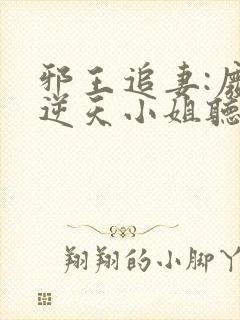 邪王追妻:廢
逆天小姐聽
翔翔的小脚丫